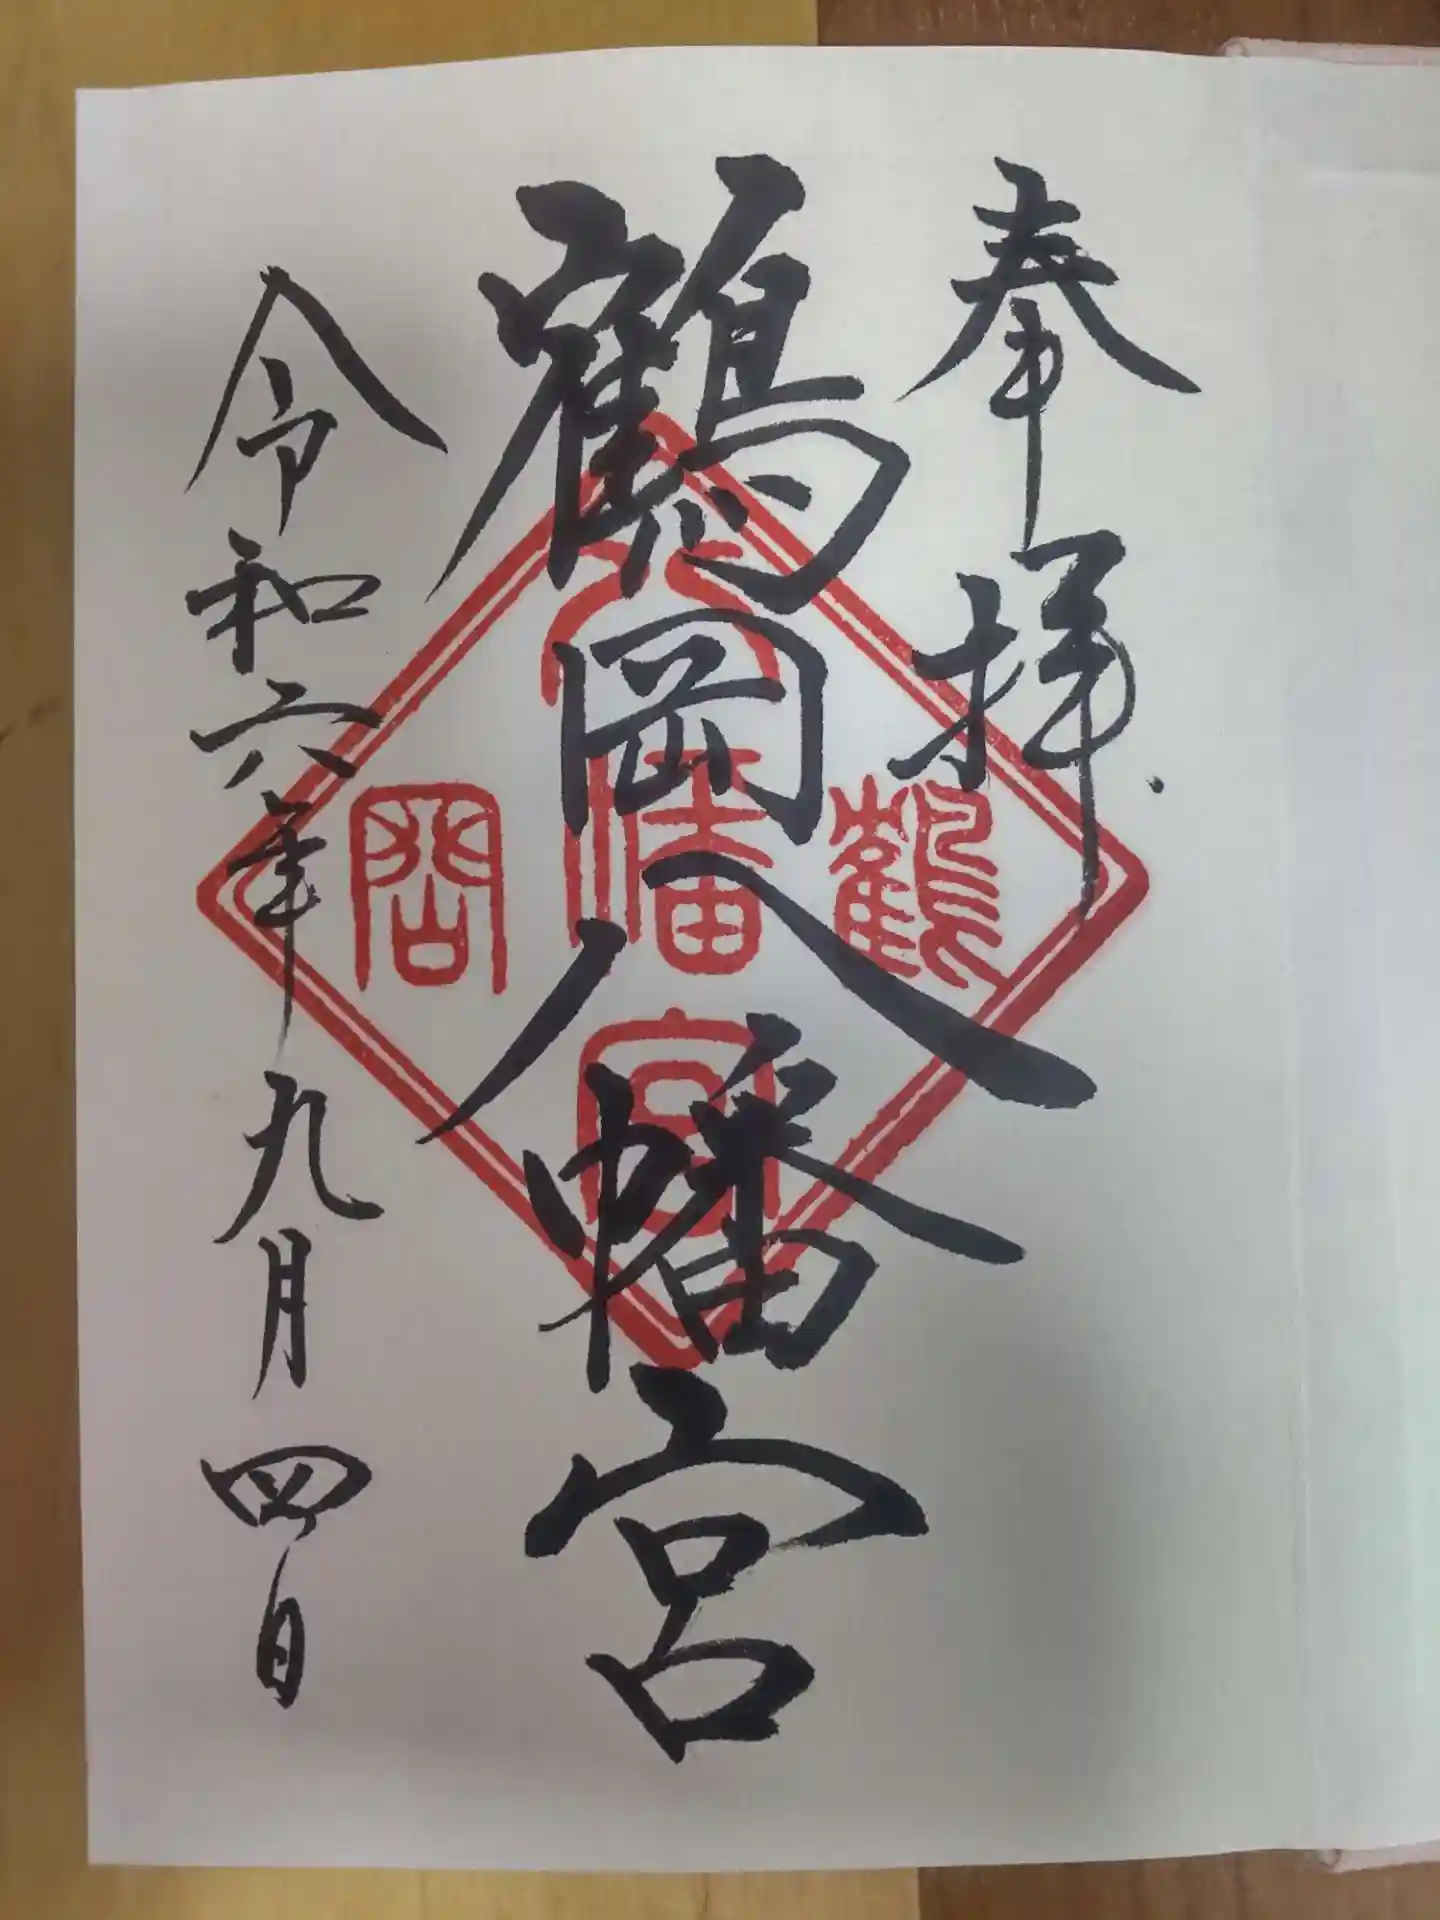 奉拝
鶴岡八幡宮
令和六年九月四日
八
鶴幡岡
宮